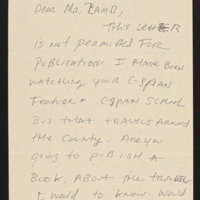 Dear Mr. LAMB,
This Letter
is not permitted for
publication. I have been
watching your C-SPAN
Feature & C-SPAN School
Bus that travels around
the County. Are you
going to publish a
Book. About the travel
I would to know. Would